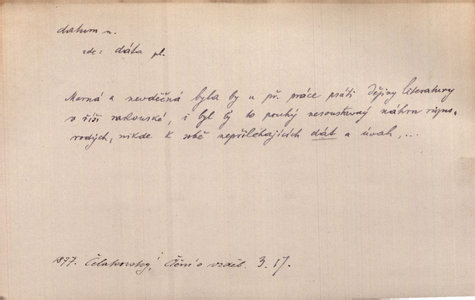 datum n.
zde: dáta pl.
Marná a nevděčná byla by u př. práce psáti dějiny literatury
v říši rakouské, i byl by to pouhý nesoustavný náhrn různo-
rodých, nikde k sobě nepřiléhajících dát a úvah, ...
1877. Čelakovský, Čtení o vzděl. 3. 17.